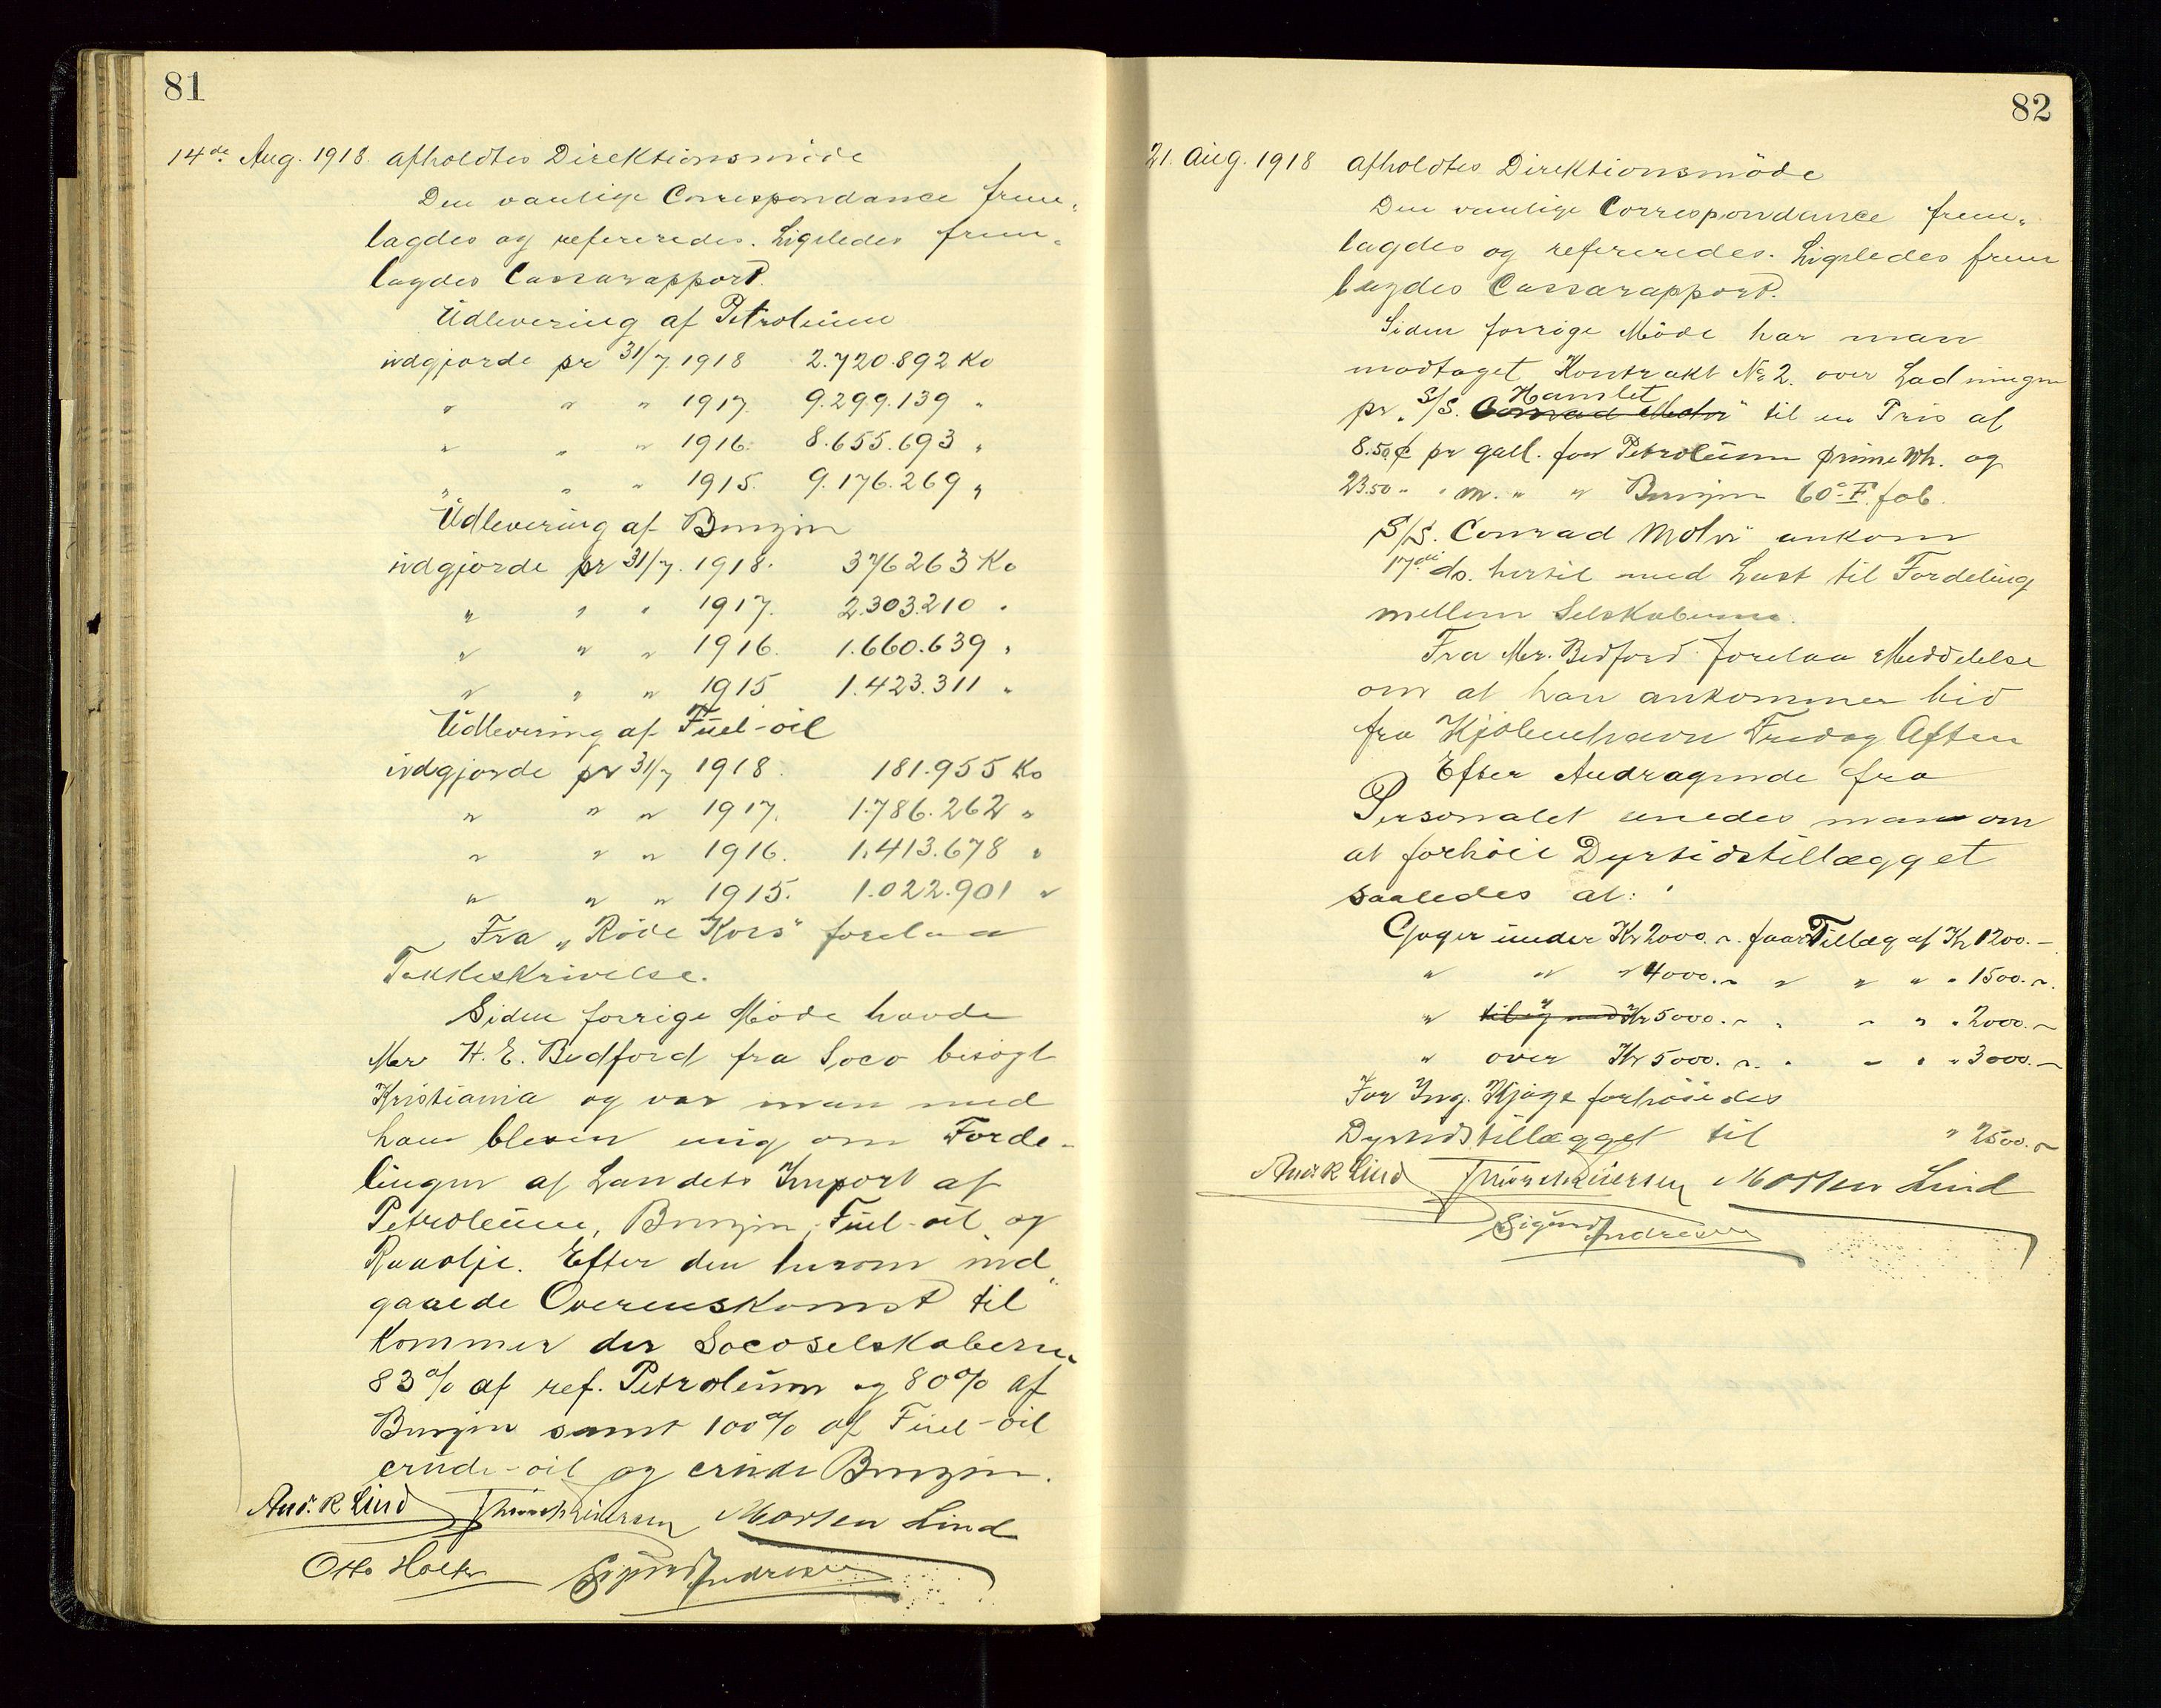 81
14de Aug. 1918. afholdtes Direktionsmöde
Den vanlige Correspondance frem-
lagdes og refereredes. Ligeledes frem-
lagdes Cassarapport.
Udlevering af Petroleum
udgjorde pr 31/7 1918 2.720.892 Ko
" " " 1917. 9.299.139 "
" " " 1916. 8.655.693 "
" " " 1915. 9.176.269 "
Udlevering af Benzin
udgjorde pr 31/7. 1918. 376263 Ko
" " " 1917. 2.303.210 "
" " " 1916. 1.660.639 "
" " " 1915 1.423.311 "
Udlevering af Fuel-oil
udgjorde pr 31/7 1918. 181.955 Ko
" " " 1917. 1.786.262 "
" " " 1916. 1.413.678 "
" " " 1915. 1.022.901 "
Fra "Röde Kors" forelaa
Takkeskrivelse.
Siden forrige Möde havde
Mr H. E. Bedford fra Soco besögt
Kristiania og var man med
ham bleven enig om Forde-
lingen af Landets Import af
Petroleum, Benzin, Fuel-oil og
Raaolje. Efter den herom ind-
gaaede Overenskomst til
kommer der Socoselskaberne
83% af ref. Petroleum og 80% af
Benzin samt 100% af Fuel-oil
crude-oil og crude Benzin.
And. R Lind Thinn Morten Lind
Otto Holter Sigurd Andresen
82
21. Aug. 1918 afholdtes Direktionsmöde
Den vanlige Correspondance frem-
lagdes og refereredes. Ligeledes frem
lagdes Cassarapport.
Siden forrige Möde har man
modtaget Kontrakt No 2. over Ladningen
Hamlet
pr. "S/S. Conrad Mohr" til en Pris af
8.50 ¢ pr gall. for Petroleum prime Wh. og
23.50 " " m. " " Benzin 60° F. fob.
S/S. Conrad Mohr" ankom
17de ds. hertil med Last til Fordeling
mellem Selskaberne.
Fra Mr. Bedford forelaa Meddelelse
om at han ankommer hid
fra Kjöbenhavn Fredag Aften
Efter Andragende fra
Personalet enedes man om
at forhöie Dyrtidstillægget
saaledes at:
Gager under Kr 2000.- faar Tillæg af Kr 1200.-
" " " 4000.- " " " " 1500.-
" til og med Kr 5000.- " " " " 2000.-
" over Kr 5000.- " " " " 3000.-
For Ing. Kjöge forhöiedes
Dyrtidstillægget til " 2500.-
And. R Lind Morten Lind
Sigurd Andresen